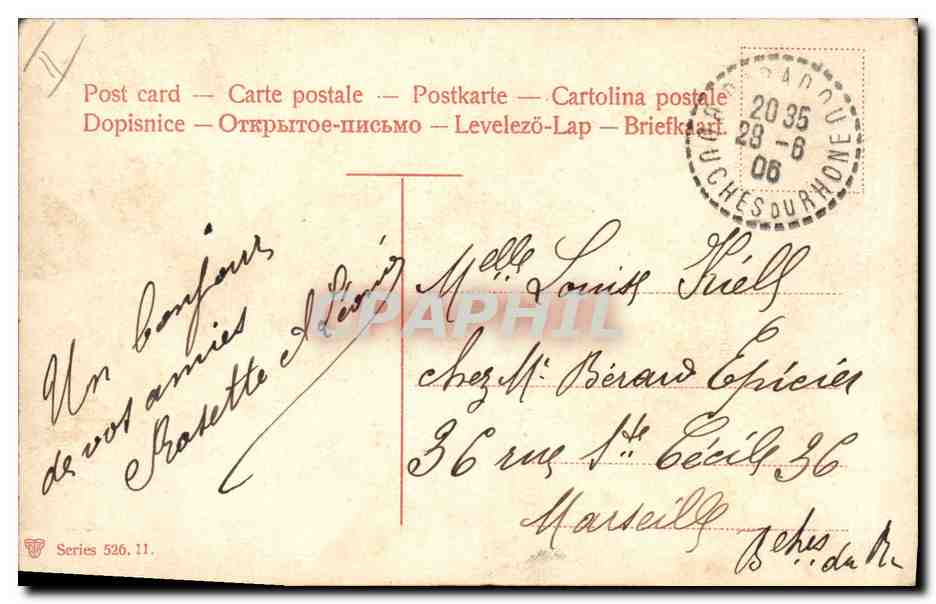 Post card — Carte postale — Postkarte — Cartolina postale
Dopisnice — Открытое-письмо — Levelező-Lap — Briefkaart.
20 35
28 - 6
06
BOUCHES DU RHONE
Un bonjour
de vos amies
Rosette &
Melle Louise
chez Mr Bérard Epicier
36 rue Ste Cécile 36
Marseille
Bches du R
CPAPHIL
Series 526. 11.